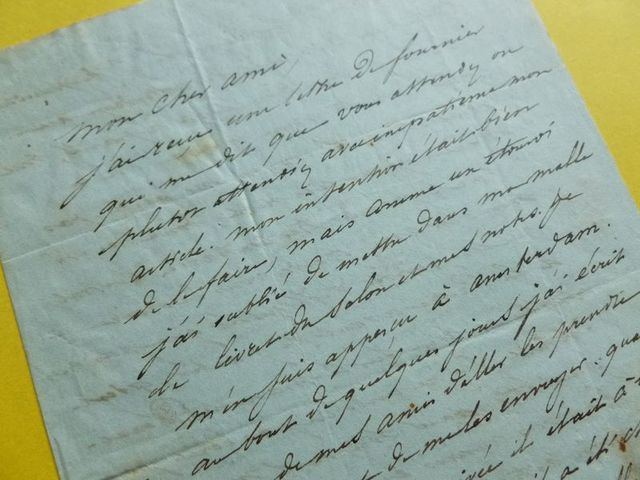 mon cher ami,
j'ai reçu une lettre de fournier
qui me dit que vous attendez ou
plutot attendiez avec impatience mon
article. mon intention était bien
de le faire, mais comme un étourdi
j'ai oublié de mettre dans ma malle
le livret du Salon et mes notes. je
m'en suis apperçu à amsterdam.
au bout de quelques jours j'ai écrit
de mes amis d'aller les prendre
et de me les envoyer. quand
il était à
a été